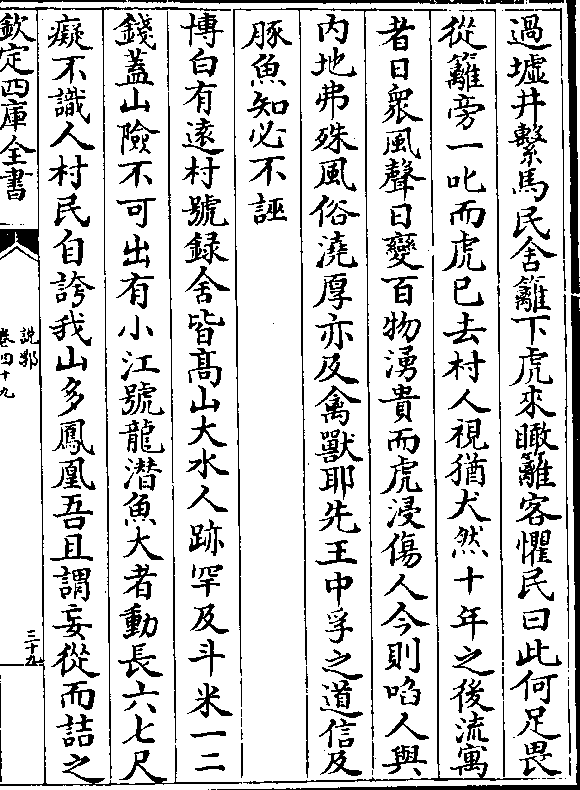 過墟井繫馬民舍籬下虎來瞰籬客懼民曰此何足畏
從籬旁一叱而虎已去村人視猶犬然十年之後流寓
者日衆風聲日變百物湧貴而虎浸傷人今則啗人與
内地弗殊風俗澆厚亦及禽獸耶先王中孚之道信及
豚魚知必不誣
博白有逺村號録舍皆髙山大水人跡罕及斗米一二
錢蓋山險不可出有小江號龍潛魚大者動長六七尺
癡不識人村民自誇我山多鳳凰吾且謂妄從而詰之
欽定四庫全書
說郛
卷四十九
三十九